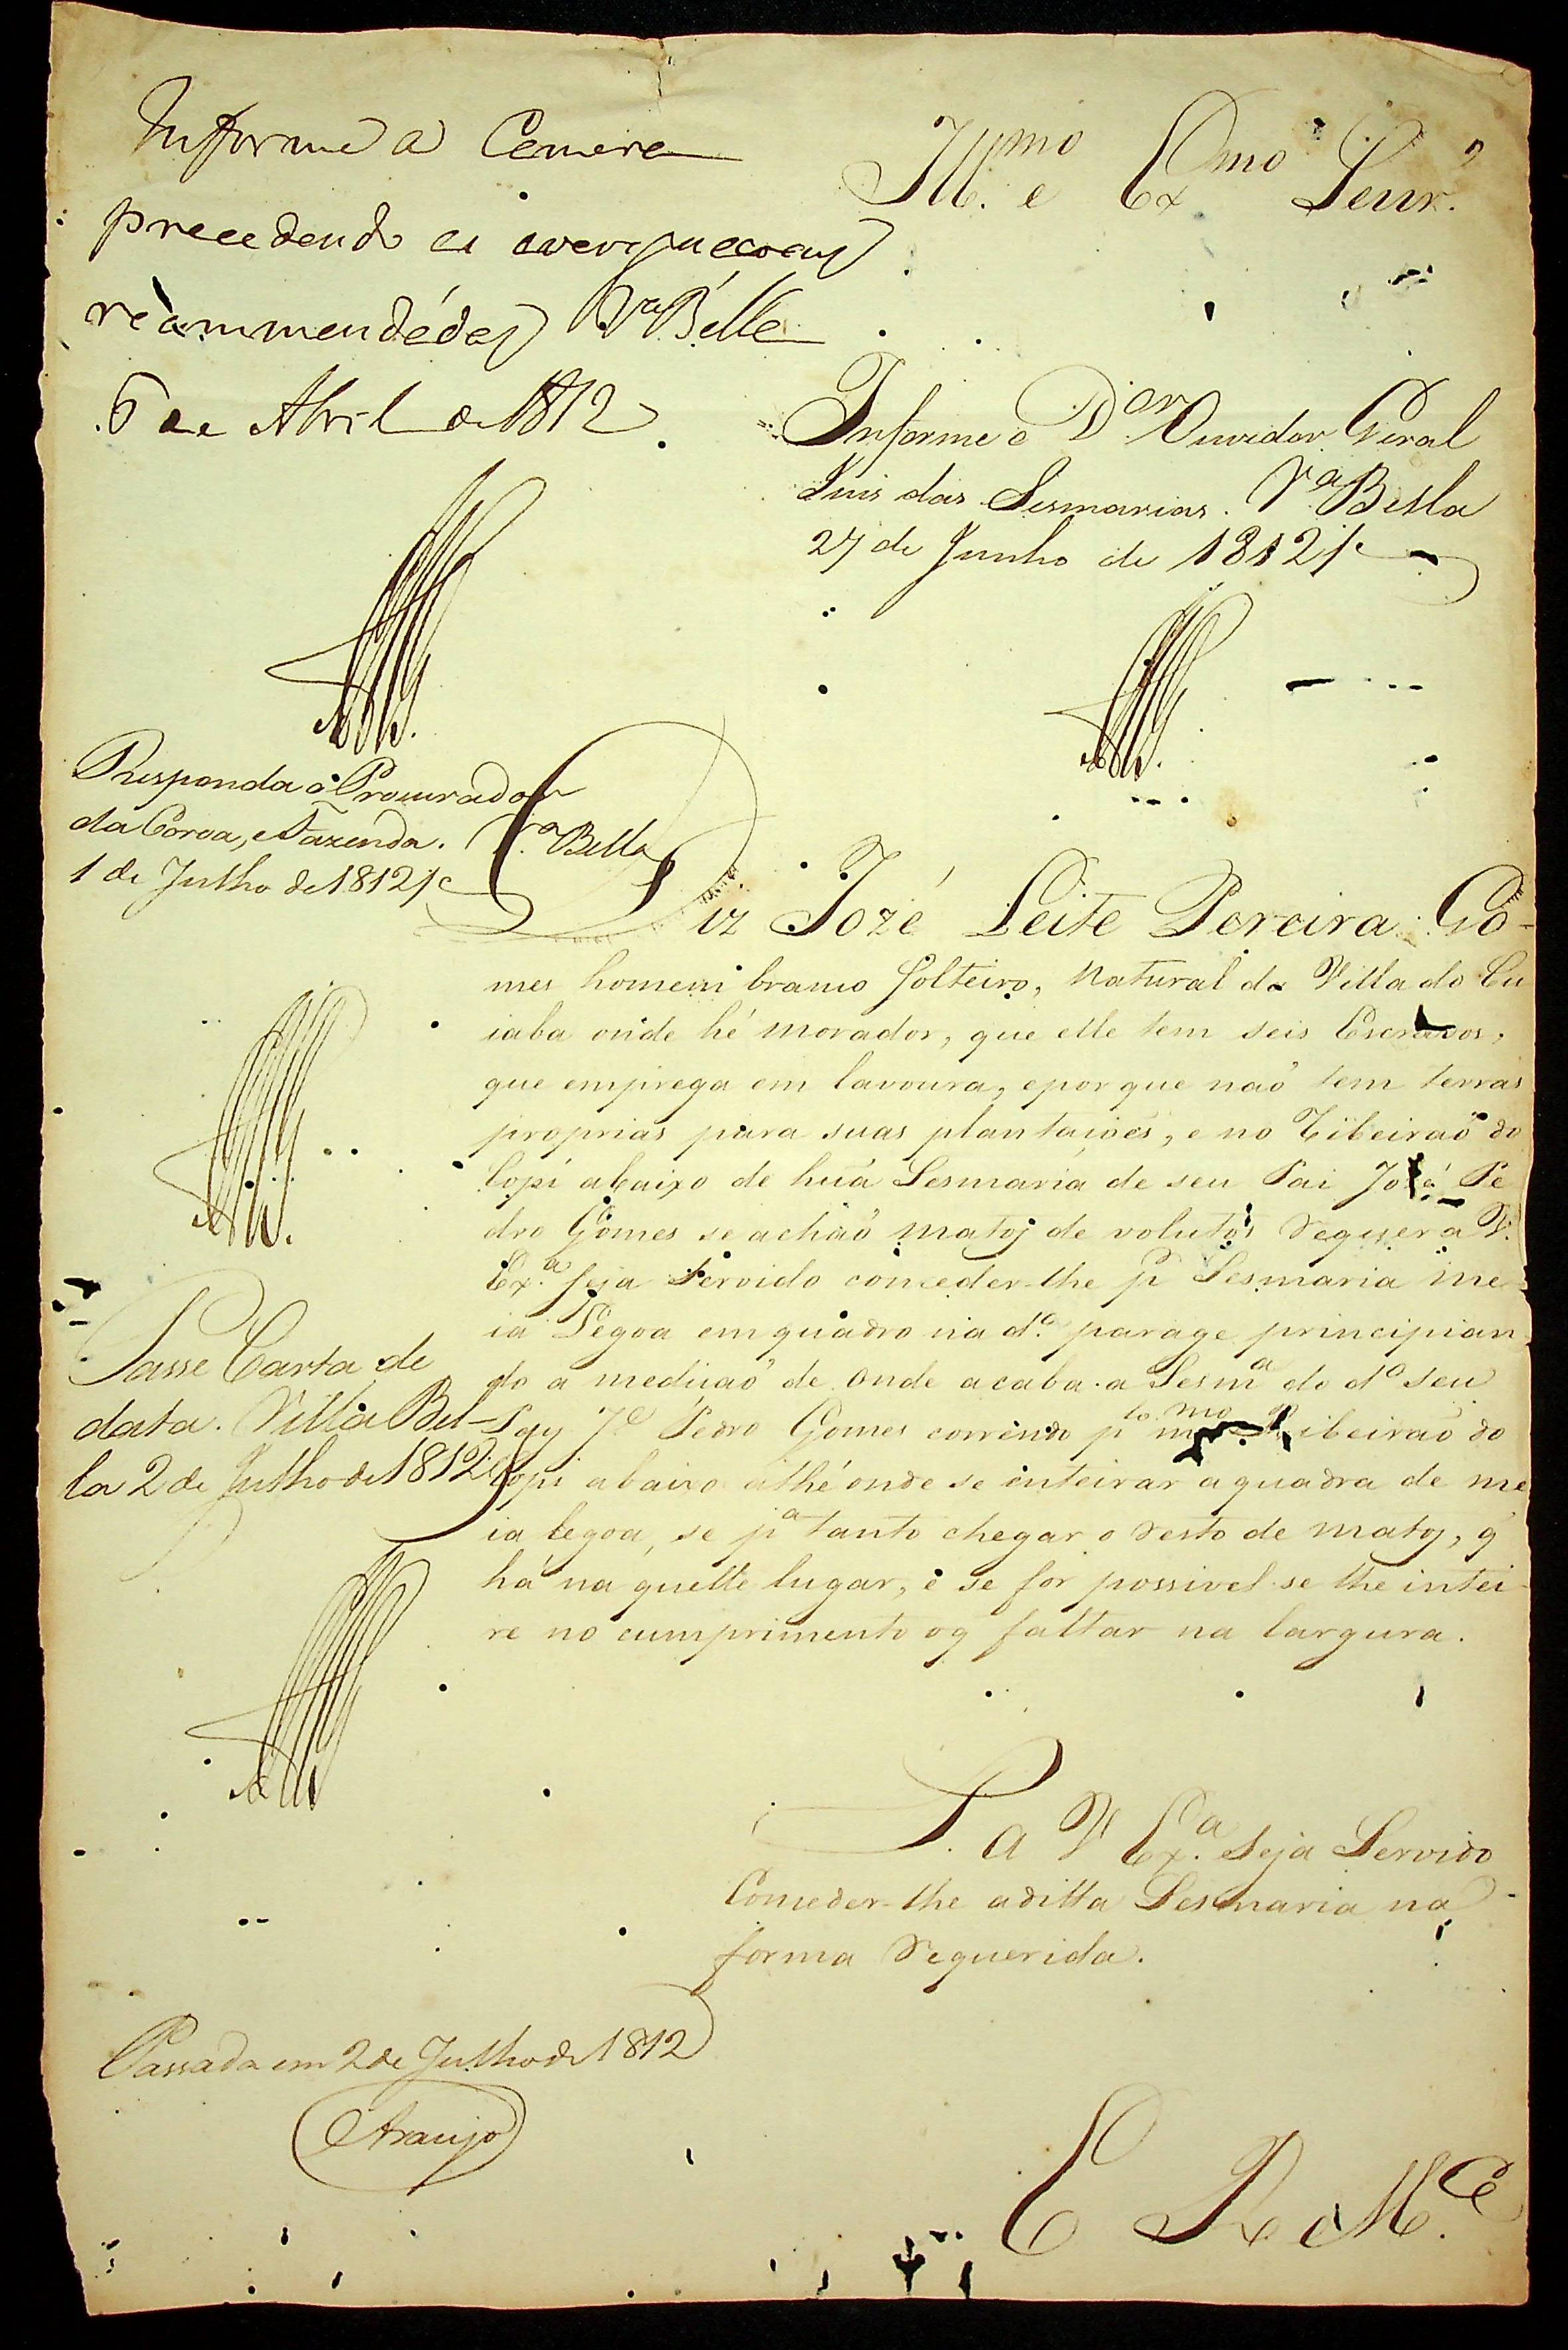 Informe a Camera
precedendo as averiguacoens
recommendádas Vª Bélla
6 de Abril de 1812.
Illmo e Exmo Senr.
Informe o Dor Ouvidor Geral
Juis das Sesmarias. Vª Bella
27 de Junho de 1812
Responda o Procurador
da Coroa, e Fazenda. Vª Bella
1 de Julho de 1812
Diz Jozé Leite Pereira Go-
mes homem branco solteiro, natural da Villa do Cu
iaba onde hé morador, que elle tem seis Escravos,
que emprega em lavoura, epor que naõ tem terras
proprias para suas plantaçoẽs, e no Ribeiraõ do
Copí abaixo de huã Sesmaria de seu Pai José Pe
dro Gomes se achaõ matos de volutos Requer a V.
Exª seja servido conceder-lhe p̃ Sesmaria me
ia Legoa em quadro na dª parage principian
do a mediçaõ de onde acaba a Sesmª do dº seu
Pay Jê Pedro Gomes correndo plo mmo Ribeiraõ do
Copi abaixo athé onde se inteirar a quadra de me
ia legoa, se pª tanto chegar o resto de matos, q̃
há na quelle lugar, e se for possivel se lhe intei-
re no cumprimento oq̃ faltar na largura.
Passe Carta de
data. Villa Bel-
la 2 de Julho de 1812
P. a V Exª. seja Servido
Conceder-lhe aditta Sesmaria na
forma requerida.
Passada em 2 de Julho de 1812
Araujo
E R Mce